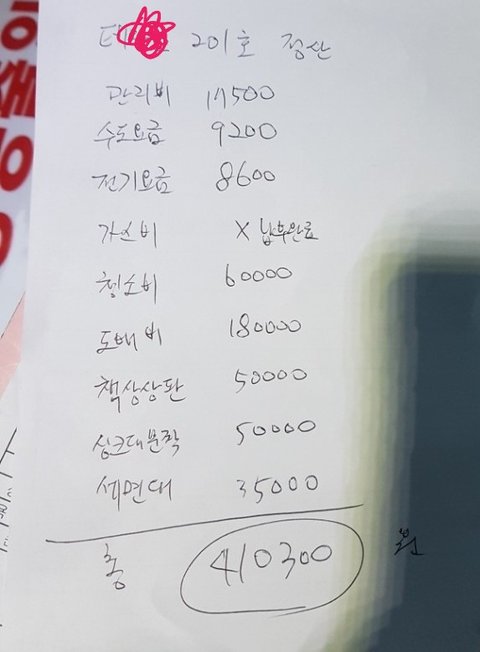 201호 정산
관리비 17500
수도요금 9200
전기요금 8600
가스비 X 납부완료
청소비 60000
도배비 180000
책상상판 50000
싱크대문짝 50000
세면대 35000
총 410300 원